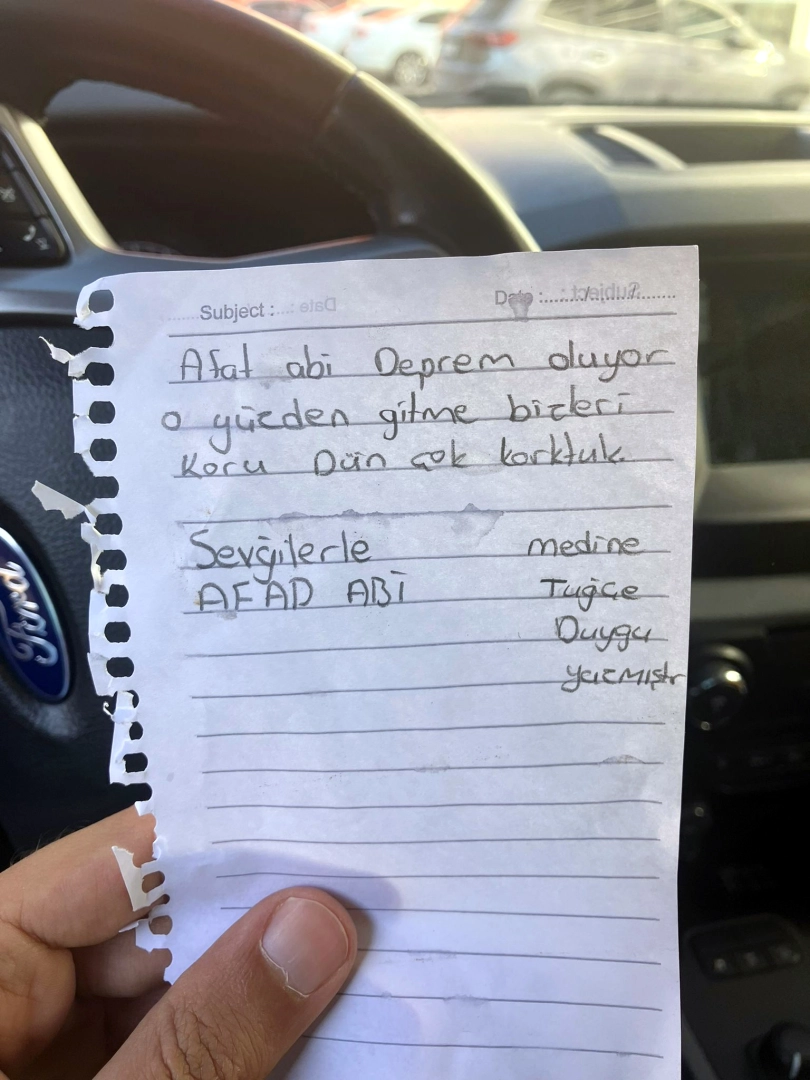 Subject :
Date :
Afat abi Deprem oluyor
o yüzden gitme bizleri
Koru Dün çok korktuk
Sevğilerle medine
AFAD ABİ Tuğçe
Duygu
yazmıştr
Ford